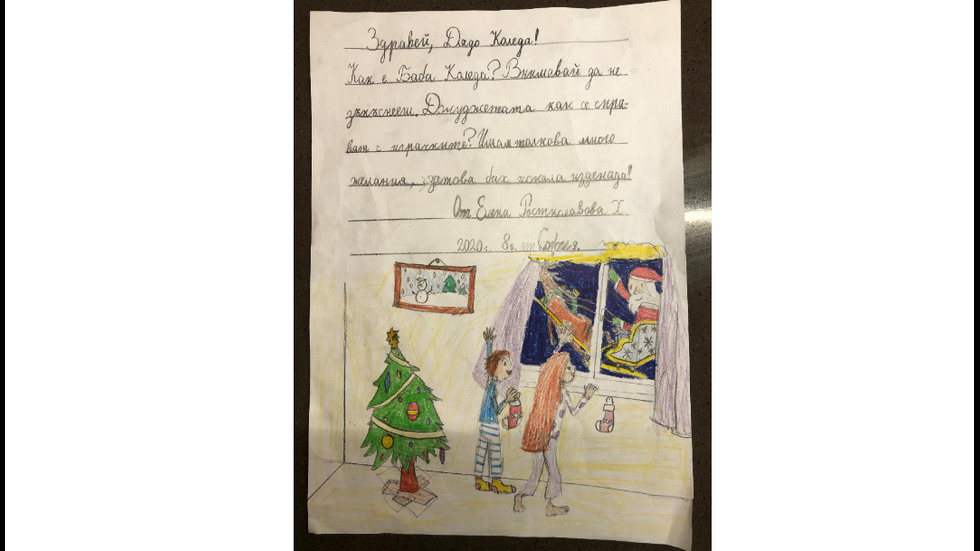 Здравей, Дядо Коледа!
Как е Баба Коледа? Внимавай да не
закъснееш. Джуджетата как се спра-
вят с играчките? Имам толкова много
желания, затова бих искала изненада!
От Елена Ростиславова Х.
2020г. 8г. от София.